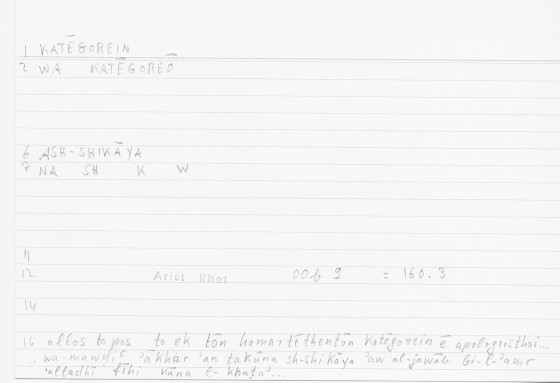 1 KATĒGOREIN
2 WA KATĒGOREŌ
6 ASH-SHIKĀYA
7 NA SH K W
11
12 Arist Rhet 00b 9 = 160.3
14
16 allos topos to ek tōn hamartēthentōn katēgorein ē apologeisthai...
.. wa-mawḍiʿ ʾākhar ʾan takūna sh-shikāya ʾaw al-jawāb bi-l-ʾamr
ʾalladhī fīhi kāna l-khaṭaʾ...